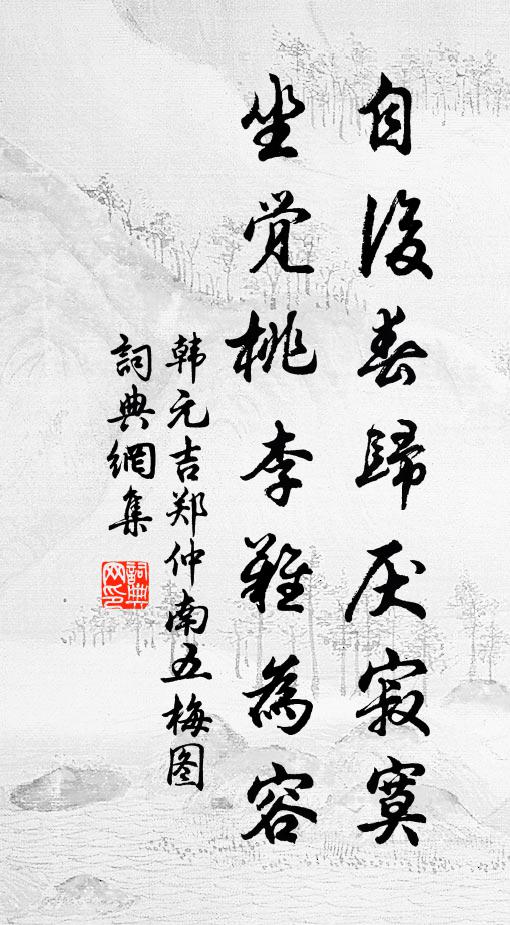 自後春歸厌寂寞
坐觉桃李難為容
韩元吉郑仲南五梅图
詞典網集
詞典网印